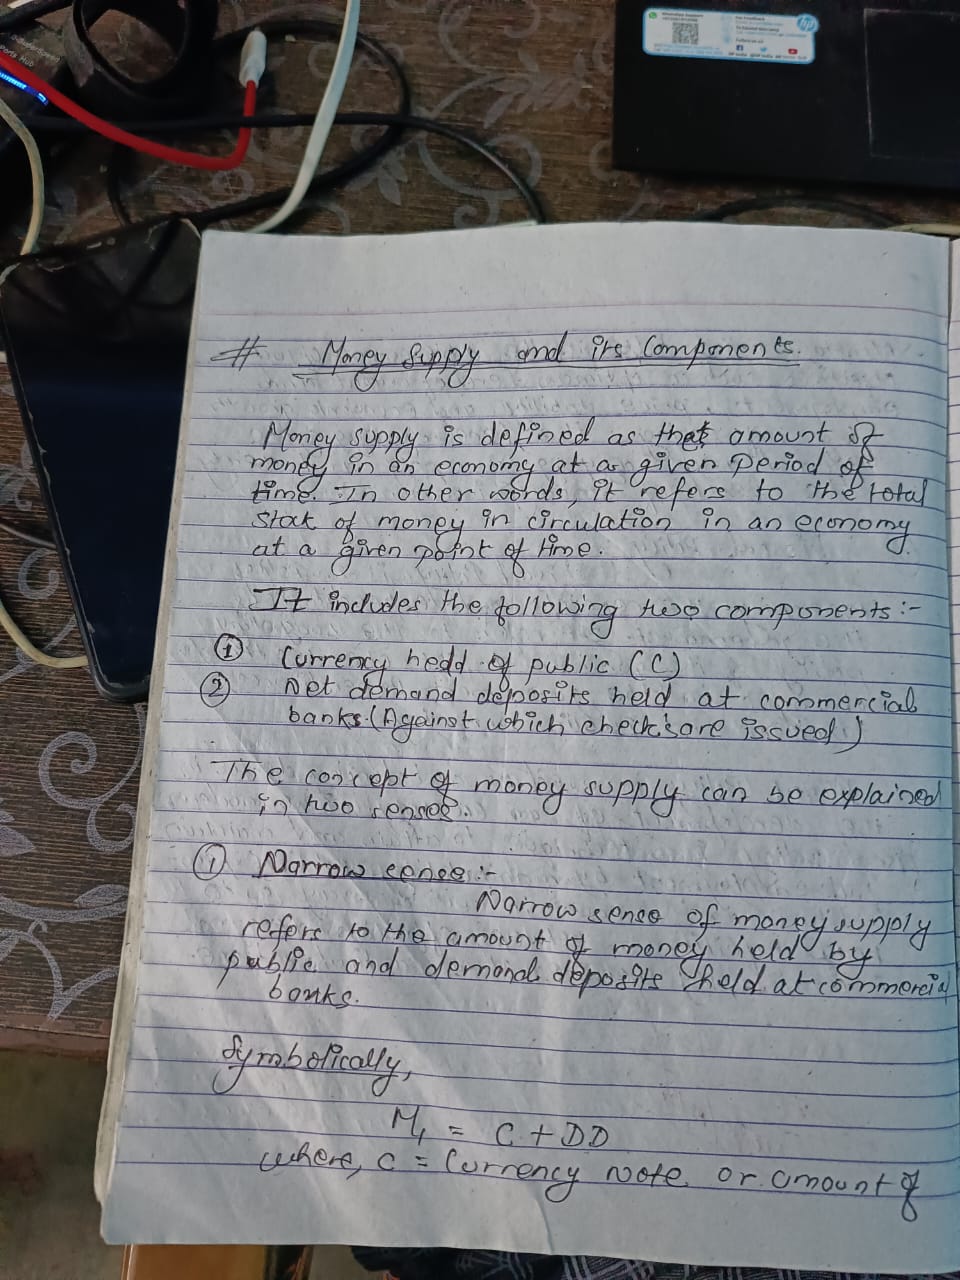 # Money Supply and its Components.
Money supply is defined as that amount of
money in an economy at a given period of
time. In other words, it refers to the total
Stock of money in circulation in an economy
at a given point of time.
It includes the following two components:-
① Currency hedd of public (C)
② Net demand deposits held at commercial
banks. (Against which check's are issued)
The concept of money supply can be explained
in two senses.
① Narrow sense:-
Narrow sense of money supply
refers to the amount of money held by
public and demand deposits held at commercial
banks.
Symbolically,
M₁ = C + DD
where, C = Currency note or amount of
Ports Hub
hp